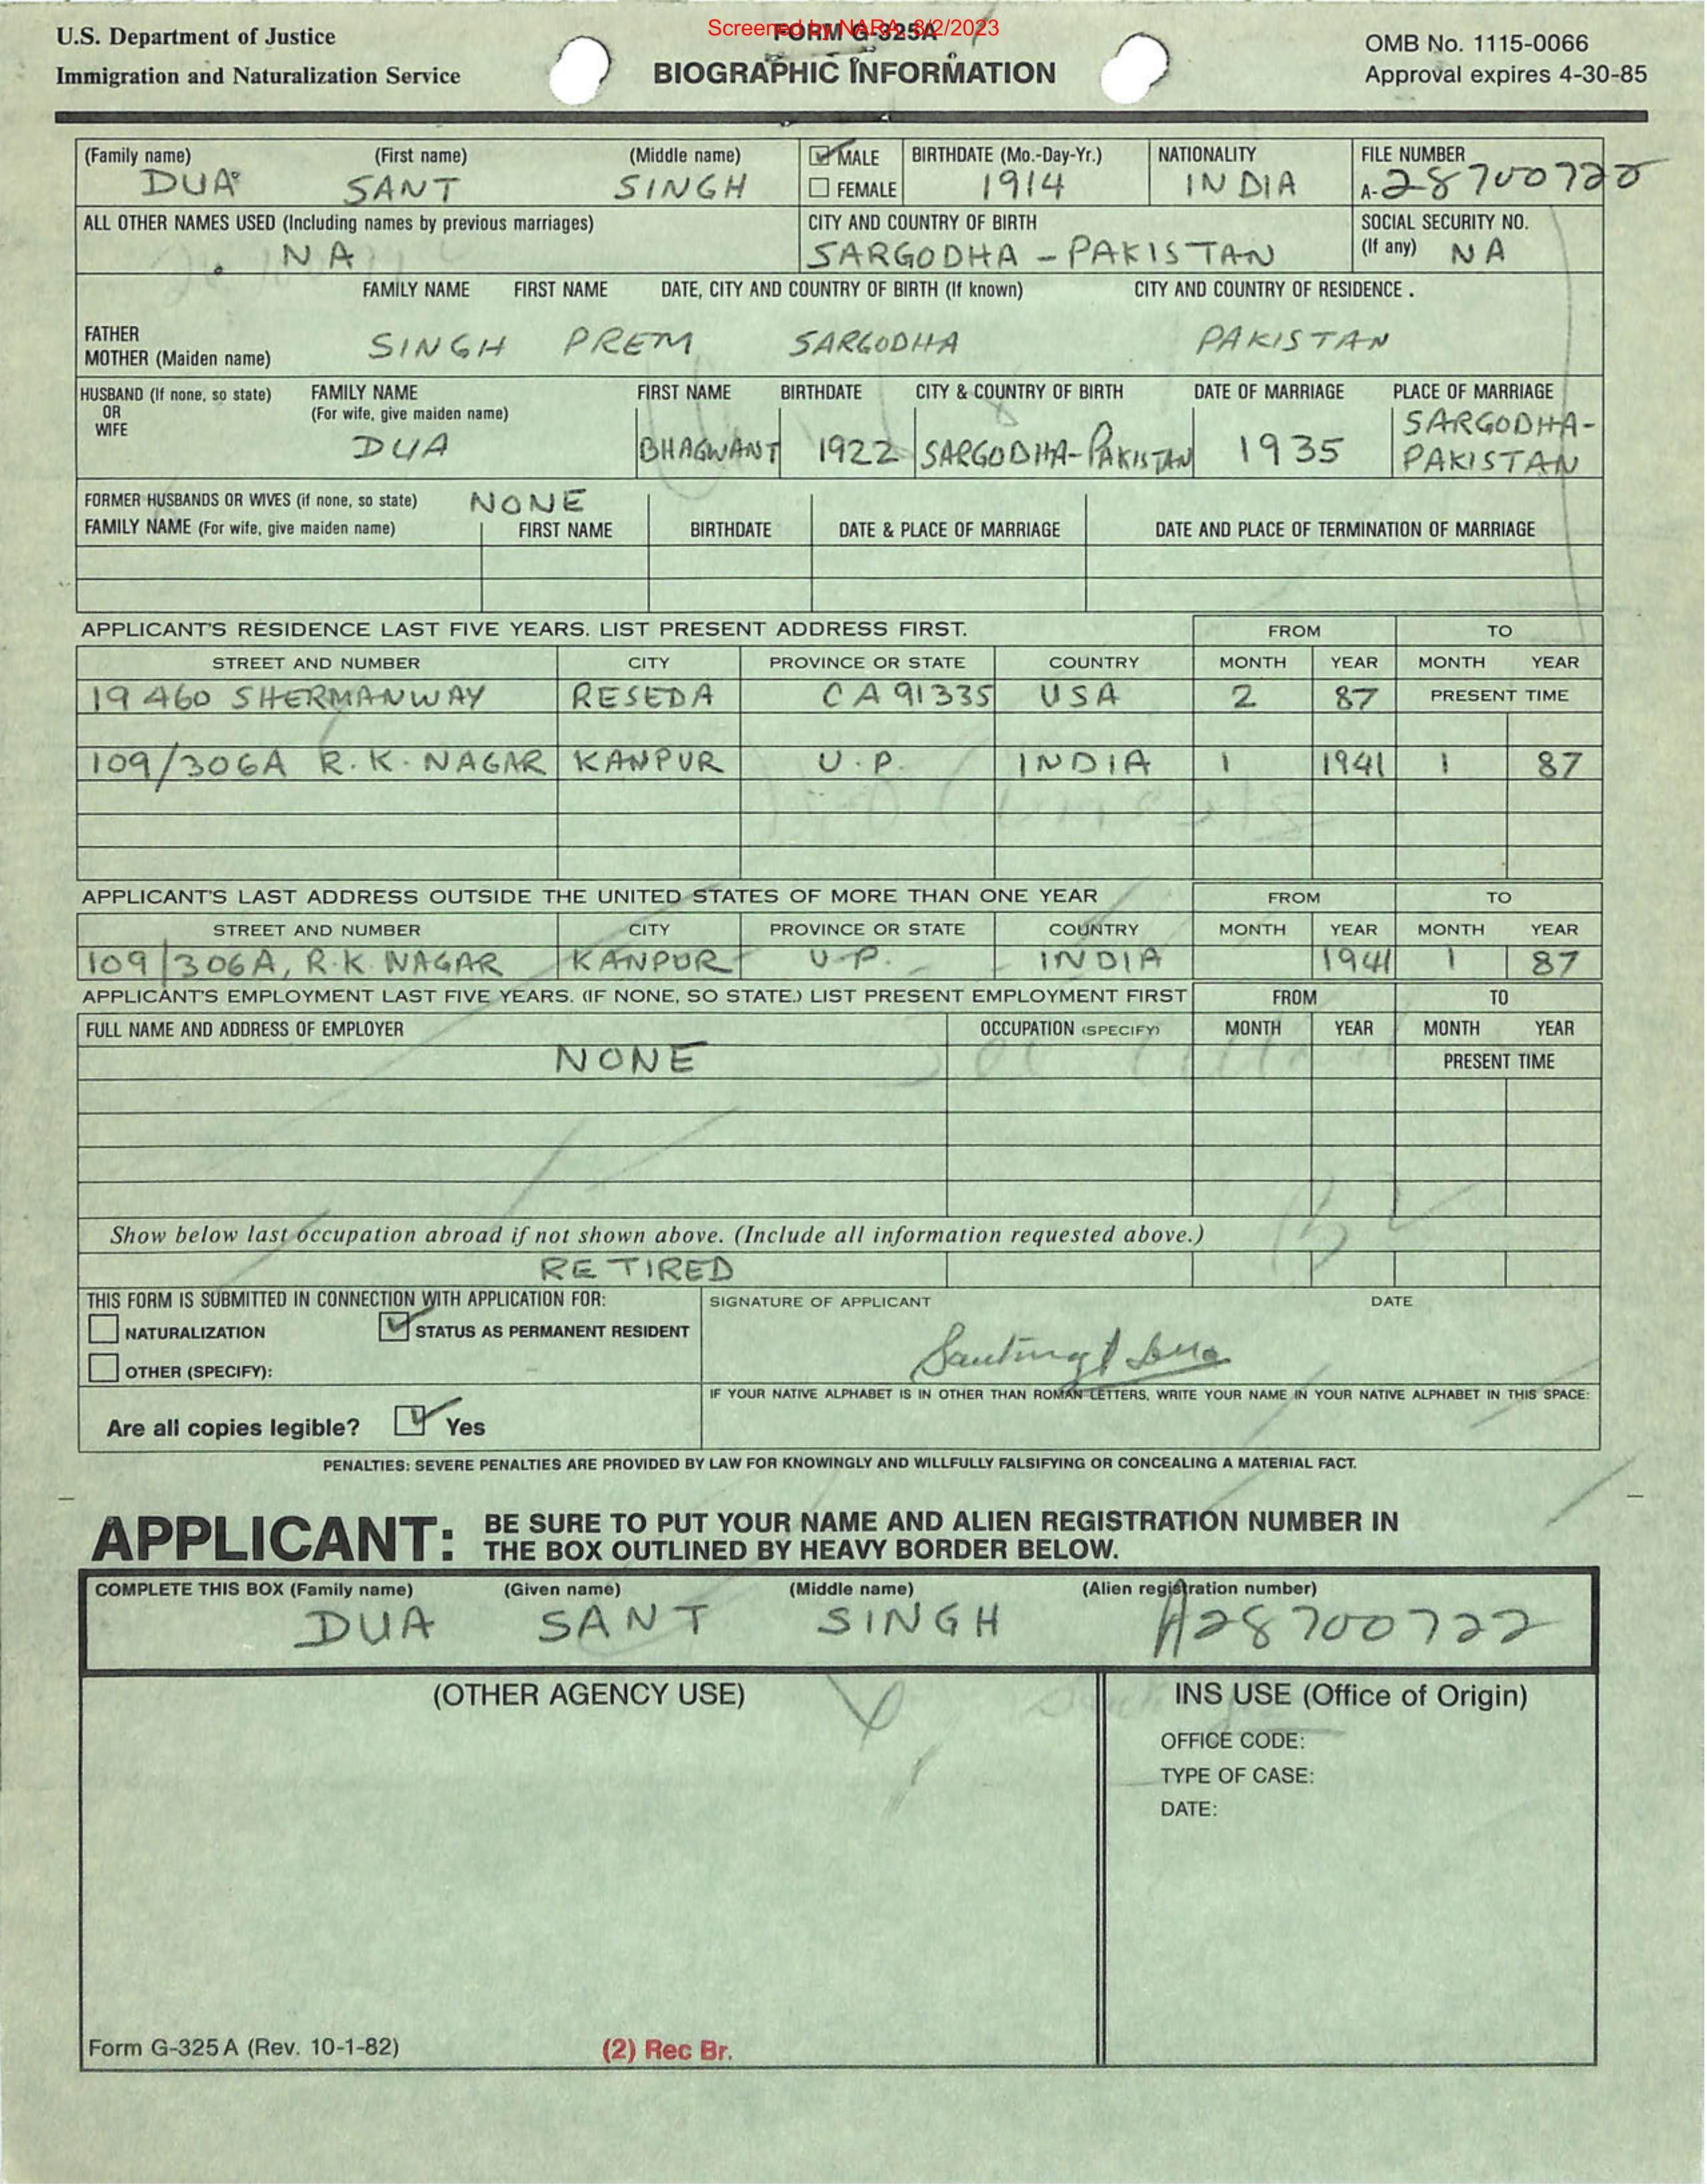 Screened by NARA, 8/2/2023
U.S. Department of Justice
Immigration and Naturalization Service
FORM G-325A
BIOGRAPHIC INFORMATION
OMB No. 1115-0066
Approval expires 4-30-85
(Family name) (First name) (Middle name) MALE BIRTHDATE (Mo.-Day-Yr.) NATIONALITY FILE NUMBER
DUA SANT SINGH FEMALE 1914 INDIA A-28700722
ALL OTHER NAMES USED (Including names by previous marriages) CITY AND COUNTRY OF BIRTH SOCIAL SECURITY NO.
NA SARGODHA - PAKISTAN (If any) NA
FAMILY NAME FIRST NAME DATE, CITY AND COUNTRY OF BIRTH (If known) CITY AND COUNTRY OF RESIDENCE .
FATHER
MOTHER (Maiden name) SINGH PREM SARGODHA PAKISTAN
HUSBAND (If none, so state) FAMILY NAME FIRST NAME BIRTHDATE CITY & COUNTRY OF BIRTH DATE OF MARRIAGE PLACE OF MARRIAGE
OR (For wife, give maiden name) SARGODHA-
WIFE
DUA BHAGWANT 1922 SARGODHA-PAKISTAN 1935 PAKISTAN
FORMER HUSBANDS OR WIVES (if none, so state) NONE
FAMILY NAME (For wife, give maiden name) FIRST NAME BIRTHDATE DATE & PLACE OF MARRIAGE DATE AND PLACE OF TERMINATION OF MARRIAGE
APPLICANT'S RESIDENCE LAST FIVE YEARS. LIST PRESENT ADDRESS FIRST. FROM TO
STREET AND NUMBER CITY PROVINCE OR STATE COUNTRY MONTH YEAR MONTH YEAR
19460 SHERMANWAY RESEDA CA 91335 USA 2 87 PRESENT TIME
109/306A R.K. NAGAR KANPUR U.P. INDIA 1 1941 1 87
APPLICANT'S LAST ADDRESS OUTSIDE THE UNITED STATES OF MORE THAN ONE YEAR FROM TO
STREET AND NUMBER CITY PROVINCE OR STATE COUNTRY MONTH YEAR MONTH YEAR
109/306A, R.K. NAGAR KANPUR U.P. INDIA 1941 1 87
APPLICANT'S EMPLOYMENT LAST FIVE YEARS. (IF NONE, SO STATE.) LIST PRESENT EMPLOYMENT FIRST FROM TO
FULL NAME AND ADDRESS OF EMPLOYER OCCUPATION (SPECIFY) MONTH YEAR MONTH YEAR
NONE PRESENT TIME
Show below last occupation abroad if not shown above. (Include all information requested above.)
RETIRED
THIS FORM IS SUBMITTED IN CONNECTION WITH APPLICATION FOR: SIGNATURE OF APPLICANT DATE
NATURALIZATION STATUS AS PERMANENT RESIDENT
OTHER (SPECIFY):
IF YOUR NATIVE ALPHABET IS IN OTHER THAN ROMAN LETTERS, WRITE YOUR NAME IN YOUR NATIVE ALPHABET IN THIS SPACE:
Are all copies legible? Yes
PENALTIES: SEVERE PENALTIES ARE PROVIDED BY LAW FOR KNOWINGLY AND WILLFULLY FALSIFYING OR CONCEALING A MATERIAL FACT.
APPLICANT: BE SURE TO PUT YOUR NAME AND ALIEN REGISTRATION NUMBER IN
THE BOX OUTLINED BY HEAVY BORDER BELOW.
COMPLETE THIS BOX (Family name) (Given name) (Middle name) (Alien registration number)
DUA SANT SINGH A28700722
(OTHER AGENCY USE) INS USE (Office of Origin)
OFFICE CODE:
TYPE OF CASE:
DATE:
Form G-325A (Rev. 10-1-82) (2) Rec Br.